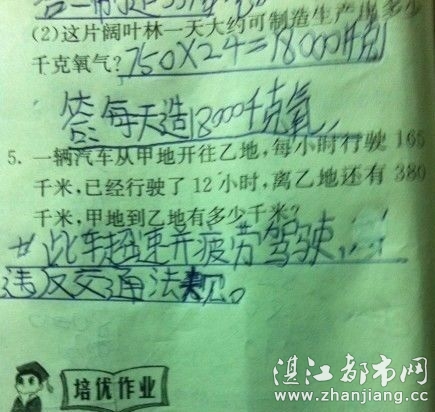 (2)这片阔叶林一天大约可制造生产出多少
千克氧气?750×24=18000千克
答每天造18000千克氧。
5. 一辆汽车从甲地开往乙地,每小时行驶165
千米,已经行驶了12小时,离乙地还有380
千米,甲地到乙地有多少千米?
此车超速并疲劳驾驶
违反交通法规。
培优作业
湛江都市网
www.zhanjiang.cc